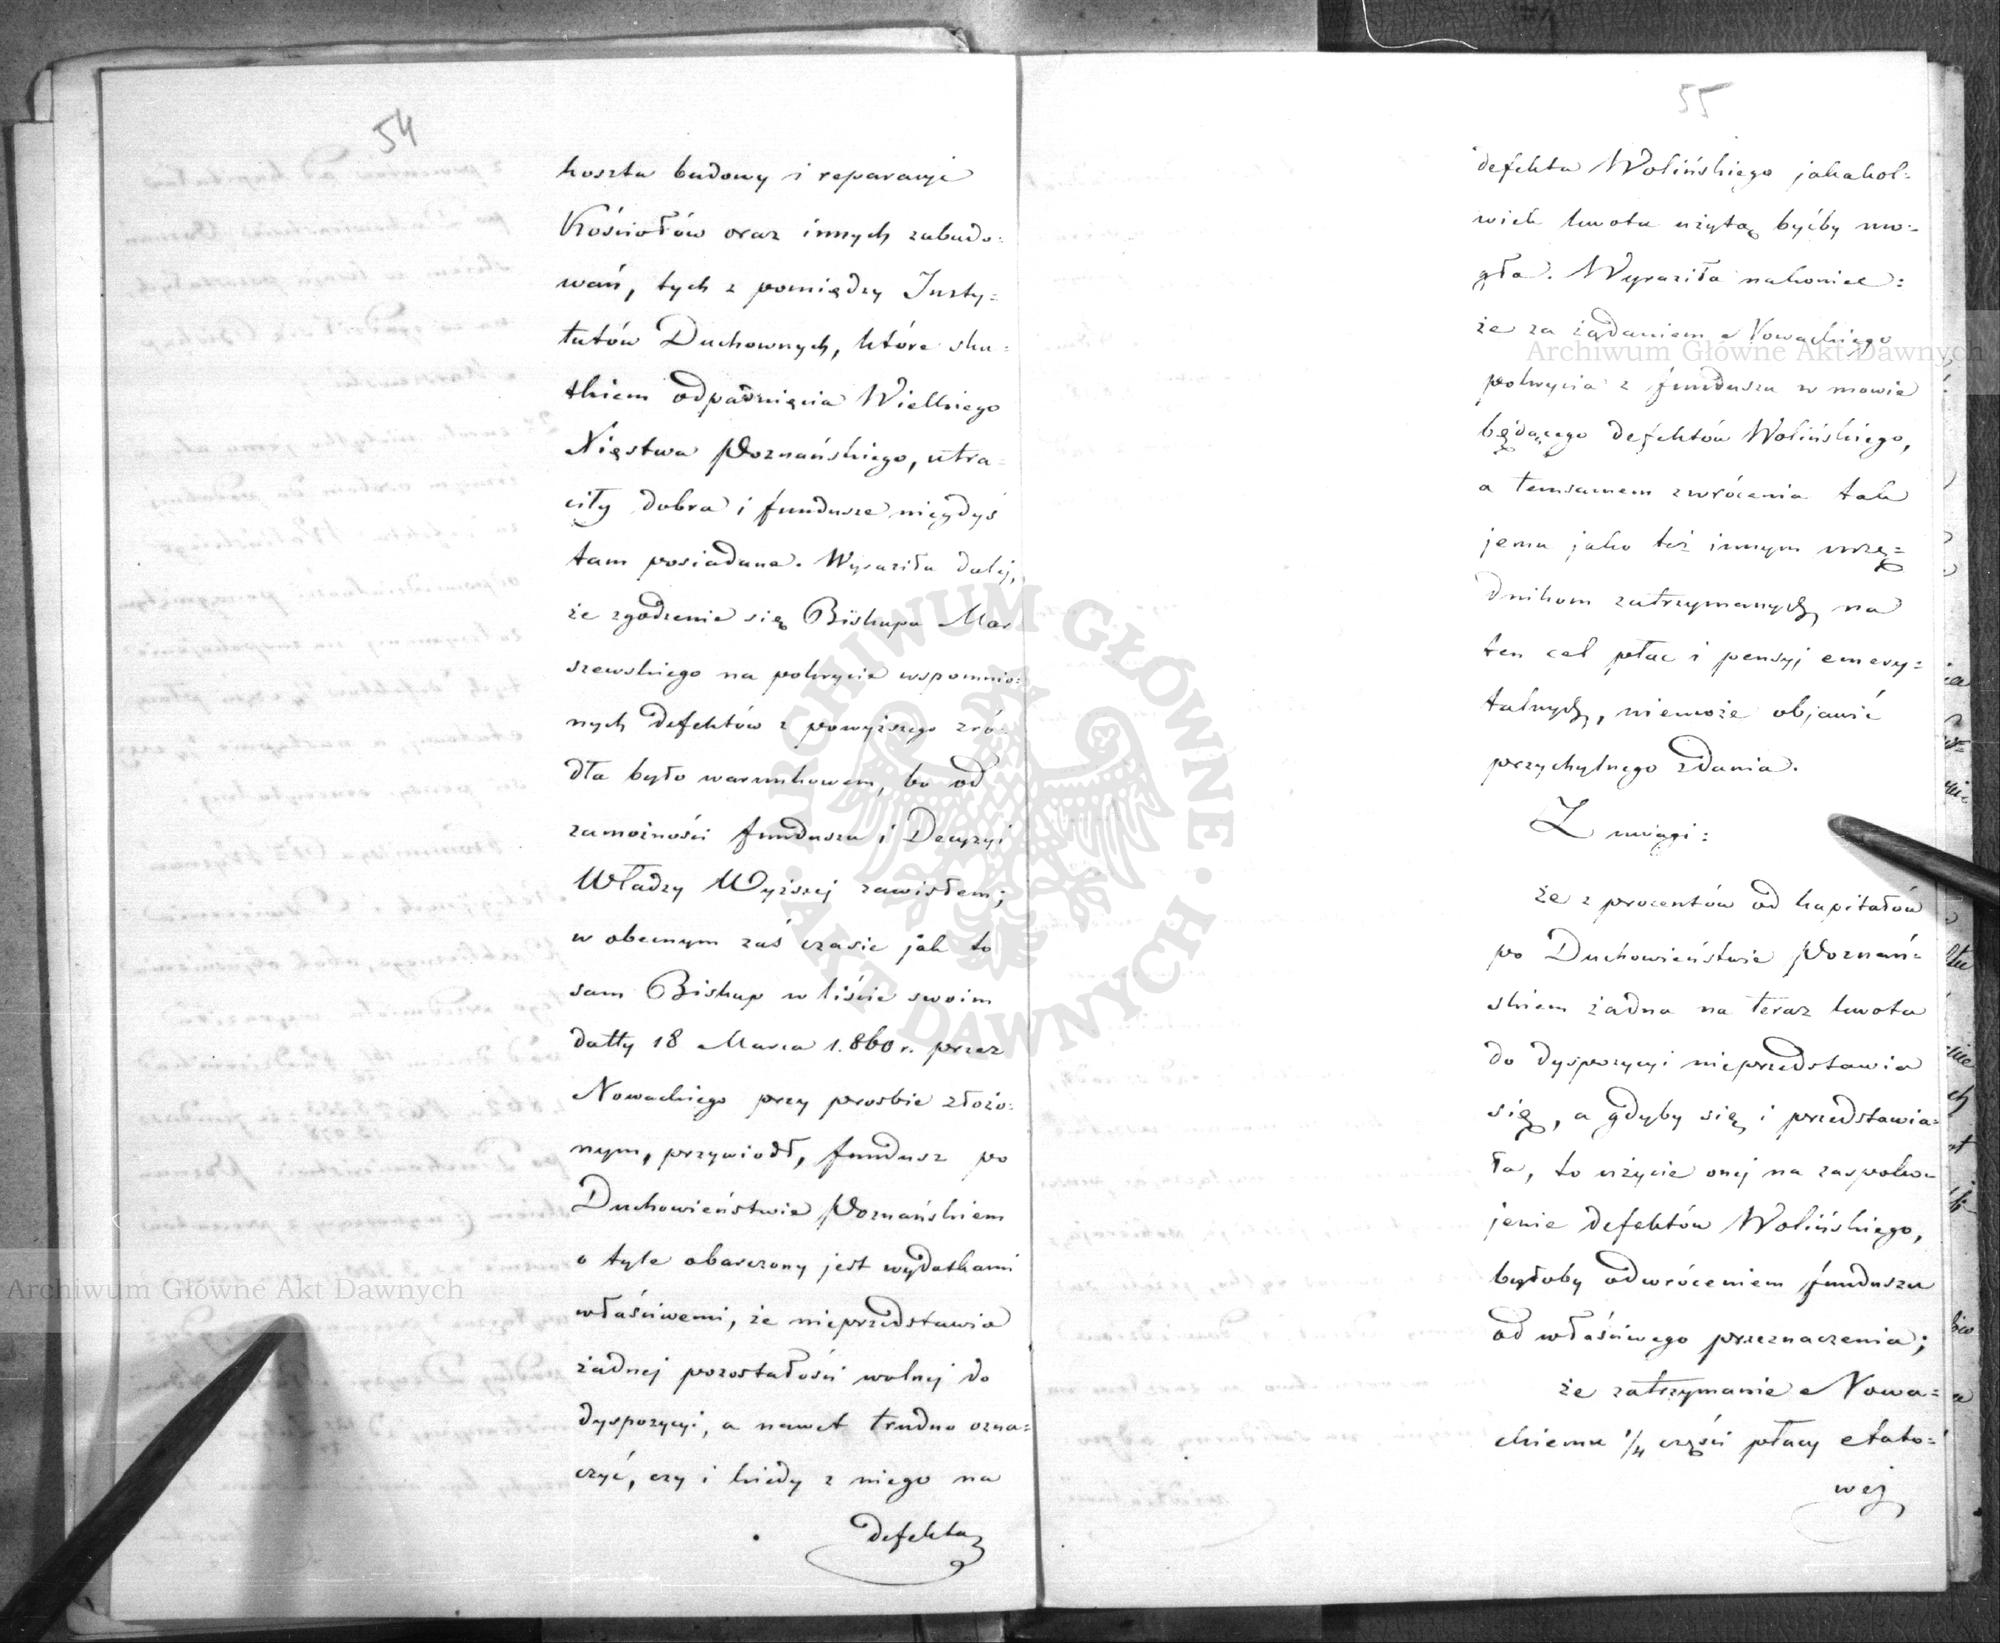 54
koszta budowy i reparacye
Kościołów oraz innych zabudo=
wań, tych z pomiędzy Insty=
tutów Duchownych, które sku=
tkiem odpadnięcia Wielkiego
Xięstwa Poznańskiego, utra=
ciły dobra i fundusze niegdyś
tam posiadane. Wyraziła dalej,
że zgodzenie się Biskupa Mar
szewskiego na pokrycie wspomnio=
nych defektów z powyższego źró=
dła było warunkowem, bo od
zamożności funduszu i Decyzyi
Władzy Wyższej zawisłem;
w obecnym zaś czasie jak to
sam Biskup w liście swoim
datty 18 Marca 1.860 r. przez
Nowackiego przy prosbie złożo=
nym, przywiodł, fundusz po
Duchowieństwie Poznańskiem
o tyle obarczony jest wydatkami
właściwemi, że nieprzedstawia
żadnej pozostałości wolnej do
dyspozycyi, a nawet trudno ozna=
czyć, czy i kiedy z niego na
defekta
55
defekta Wolińskiego jakakol=
wiek kwota użytą byćby mo=
gła. Wyraziła nakoniec:
że za żądaniem Nowackiego
pokrycia z funduszu w mowie
będącego defektów Wolińskiego,
a temsamem zwrócenia tak
jemu jako też innym urzę=
dnikom zatrzymanych na
ten cel płac i pensyj emery=
talnych, niemoże objawić
przychylnego zdania.
Z uwagi:
że z procentów od kapitałów
po Duchowieństwie Poznań=
skiem żadna na teraz kwota
do dyspozycyi nieprzedstawia
się, a gdyby się i przedstawia=
ła, to użycie onej na zaspoko=
jenie defektów Wolińskiego,
byłoby odwróceniem funduszu
od właściwego przeznaczenia;
że zatrzymanie Nowa=
ckiemu 1/4 części płacy etato=
wej
Archiwum Główne Akt Dawnych
Archiwum Główne Akt Dawnych
ARCHIWUM GŁÓWNE AKT DAWNYCH